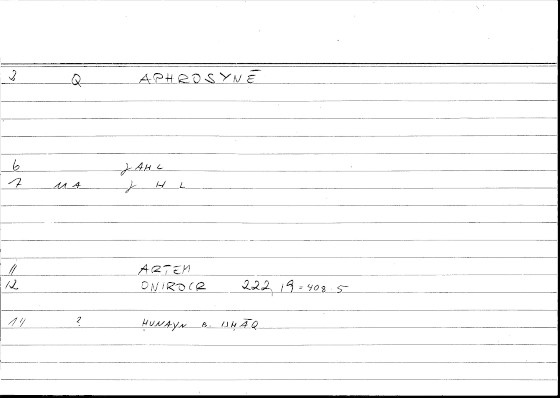 3 Q APHROSYNĒ
6 ǧAHL
7 MA ǧ H L
11 ARTEM
12 ONIROCR 222, 19 = 408 5
14 ? ḤUNAYN B. ISḤĀQ